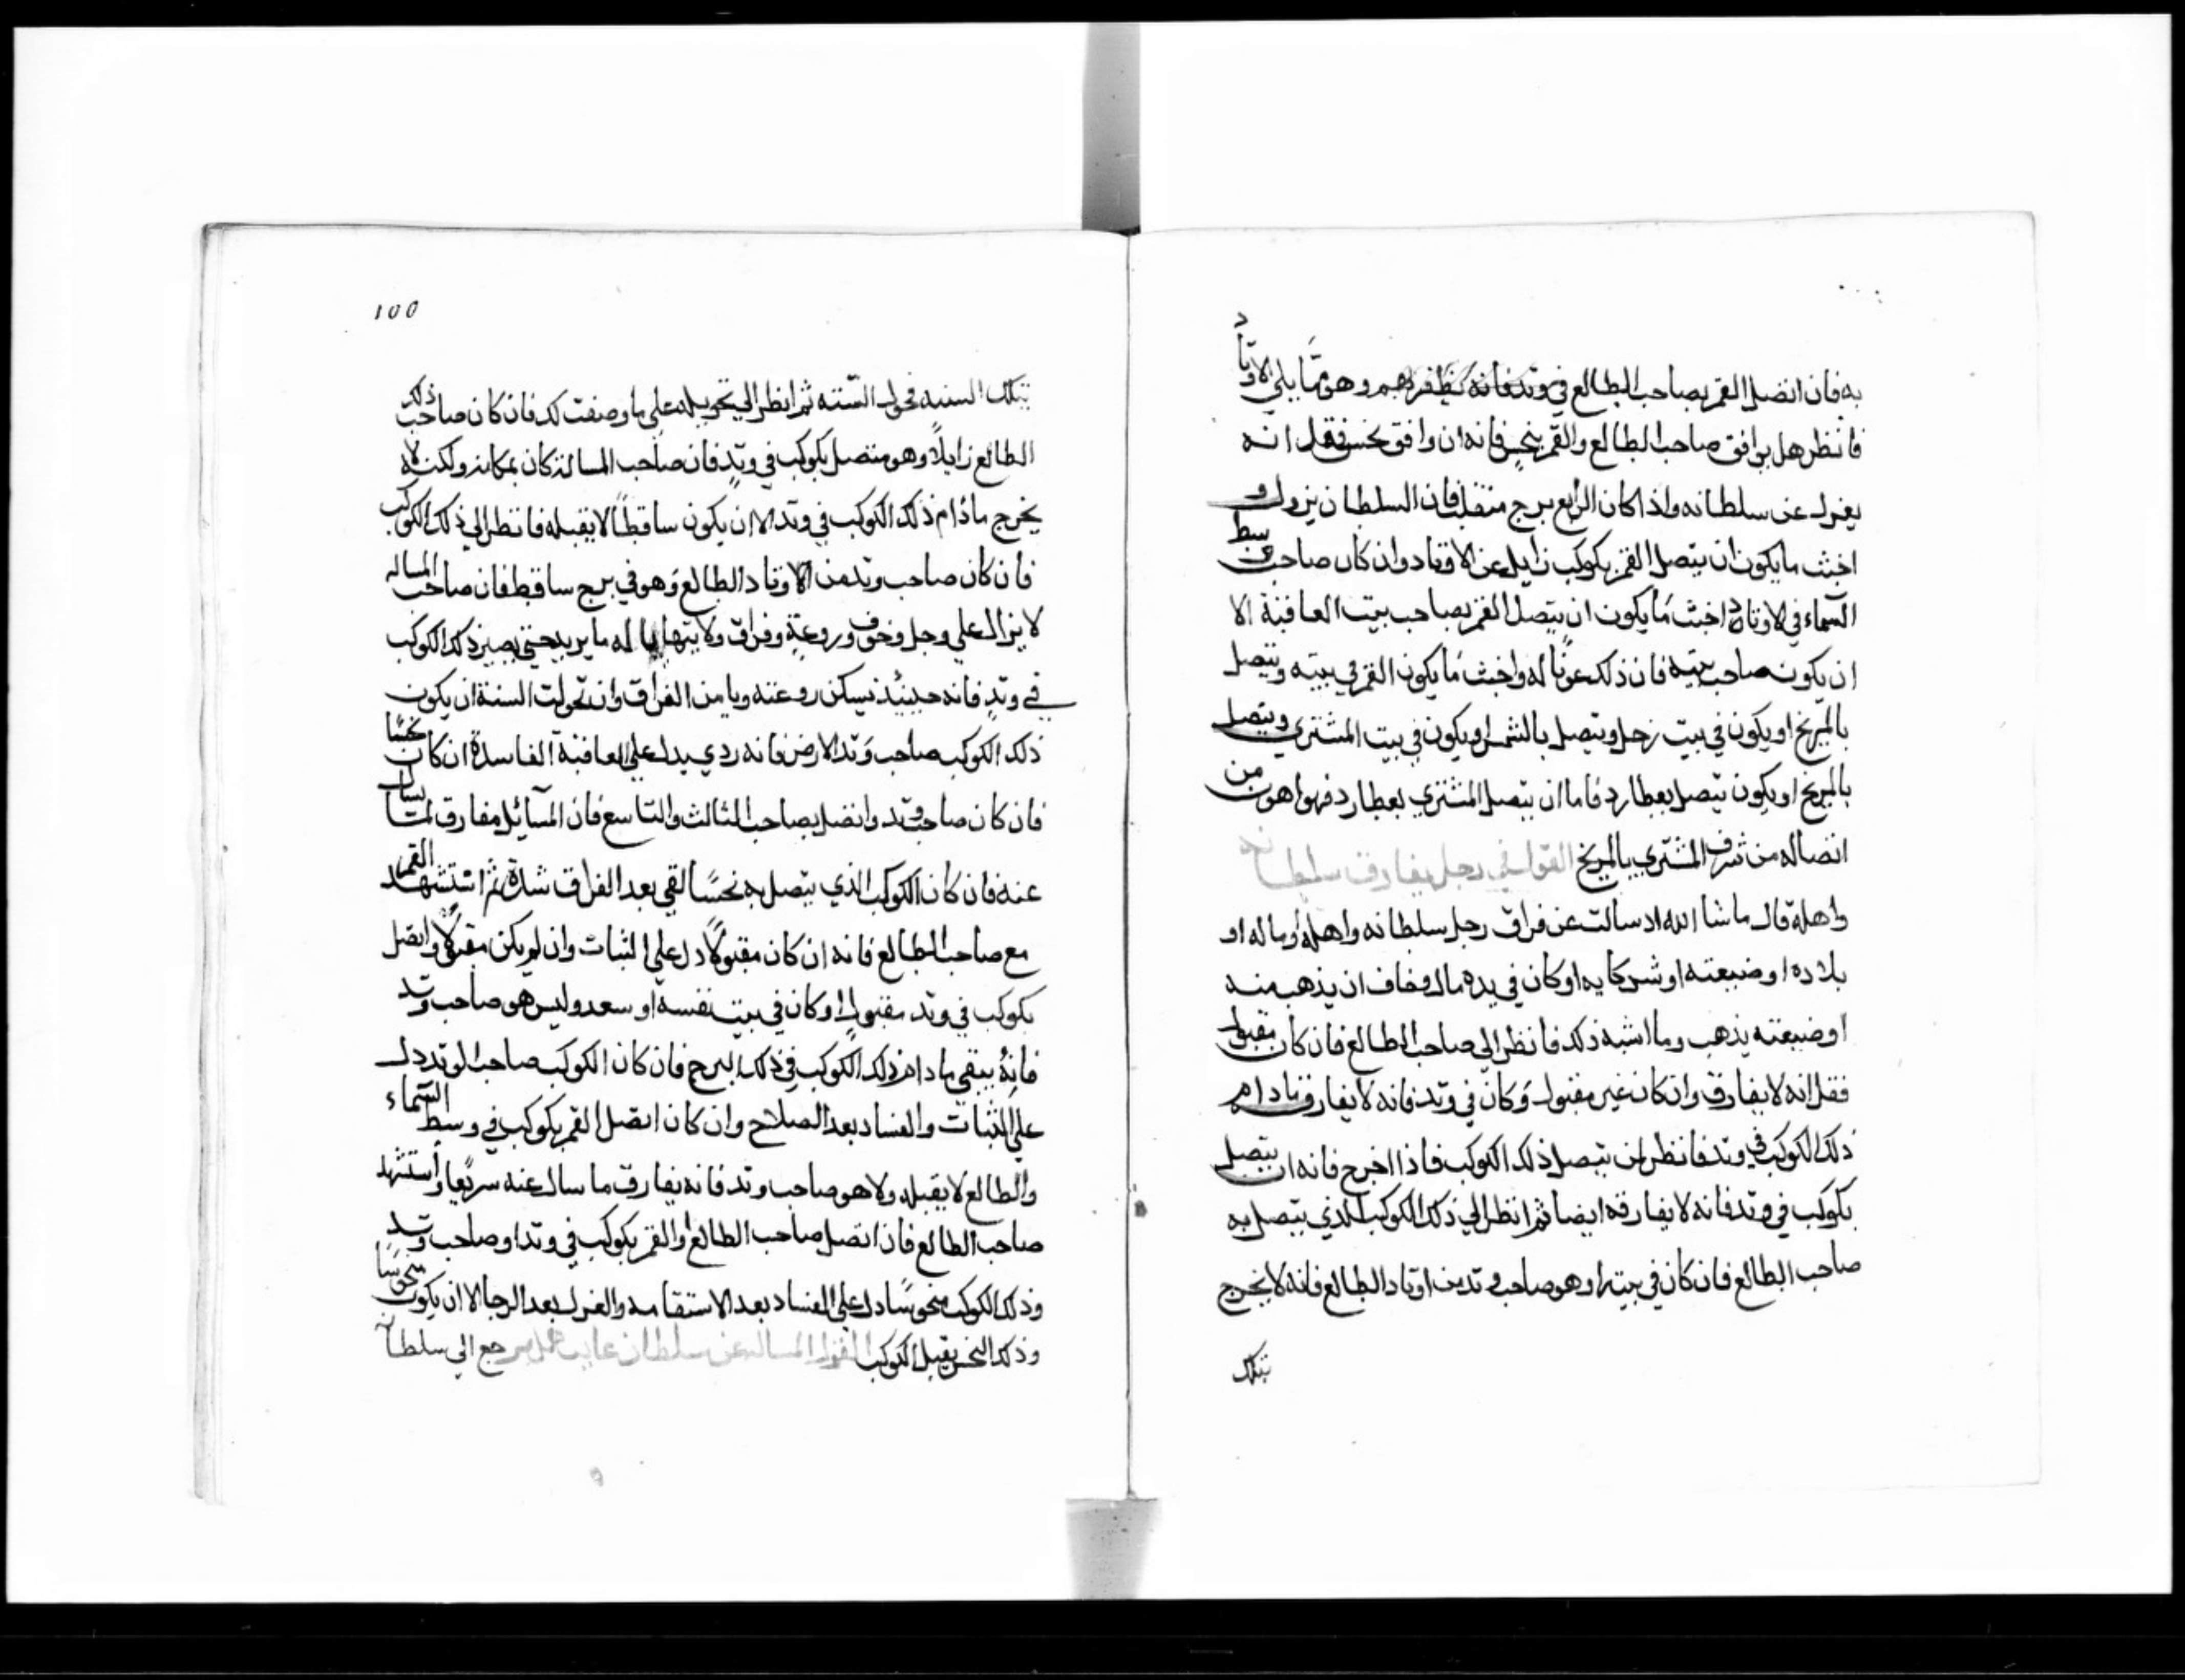 به فان اتصل القمر بصاحب الطالع في وتد فانه يظفر بهم وهو مما يلي الاوتاد
فانظر هل يوافق صاحب الطالع والقمر بنحس فانه ان وافق بنحس فقل انه
يعزل عن سلطانه واذا كان الرابع برج منقلب فان السلطان يزول و
اخبث ما يكون ان يتصل القمر بكوكب زايل عن الاوتاد وان كان صاحب وسط
السماء في الاوتاد واخبث ما يكون ان يتصل القمر بصاحب بيت العاقبة الا
ان يكون صاحب بيته فان ذلك عونا له واخبث ما يكون القمر في بيته ويتصل
بالمريخ او يكون في بيت زحل ويتصل بالشمس او يكون في بيت المشتري ويتصل
بالمريخ او يكون يتصل بعطارد فاما ان يتصل المشتري بعطارد فهو اهون من
اتصاله من شرف المشتري بالمريخ القول في رجل يفارق سلطانه
واهله قال ما شا الله اد سالت عن فراق رجل سلطانه واهله او ماله او
بلاده او ضيعته او شركايه او كان في يده مال وخاف ان يذهب منه
او ضيعته يذهب وما اشبه ذلك فانظر الى صاحب الطالع فان كان مقبول
فقل انه لا يفارق وان كان غير مقبول وكان في وتد فانه لا يفارق ما دام
ذلك الكوكب في وتد فانظر لمن يتصل ذلك الكوكب فاذا اخرج فانه ان يتصل
بكوكب في وتد فانه لا يفارقه ايضا ثم انظر الي ذلك الكوكب الذي يتصل به
صاحب الطالع فان كان في بيته او هو صاحب وتد من اوتاد الطالع فانه لا يخرج
بتلك
100
بتلك السنه فحول السنه ثم انظر الي تحويله علي ما وصفت لك فان كان صاحب ذلك
الطالع زايلا وهو متصل بكوكب في وتد فان صاحب المسالة كان بمكانه ولكنه لا
يخرج ما دام ذلك الكوكب في وتد الا ان يكون ساقطا لا يقبله فانظر الي ذلك الكوكب
فان كان صاحب وتد من الاوتاد الطالع وهو في برج ساقط فان صاحب المساله
لا يزال علي وجل وخوف وروعة وفراق ولا يتها له ما يريد حتى يصير ذلك الكوكب
في وتد فانه حينيذ تسكن روعته ويامن الفراق وان تحولت السنة ان يكون
ذلك الكوكب صاحب وتد الارض فانه ردي يدل علي العاقبة الفاسدة ان كان نحسا
فان كان صاحب وتد واتصل بصاحب الثالث والتاسع فان المسائل مفارق لما يسال
عنه فان كان الكوكب الذي يتصل به نحسا لقي بعد الفراق شدة ثم استشهد القمر
مع صاحب الطالع فانه ان كان مقبولا دل علي الثبات وان لم يكن مقبولا واتصل
بكوكب في وتد مقبول او كان في بيت نفسه او سعد وليس هو صاحب وتد
فانه يبقي ما دام ذلك الكوكب في ذلك البرج فان كان الكوكب صاحب الوتد دل
علي الثبات والفساد بعد الصلاح وان كان اتصل القمر بكوكب في وسط السماء
والطالع لا يقبله ولا هو صاحب وتد فانه يفارق ما سال عنه سريعا واستشهد
صاحب الطالع فان اتصل صاحب الطالع او القمر بكوكب في وتد او صاحب وتد
وذلك الكوكب منحوسا دل علي الفساد بعد الاستقامه والعزل بعد الرجا الا ان يكون منحوسا
وذلك النحس يقبل الكوكب القول المساله عن سلطان غايب هل يرجع الى سلطانه